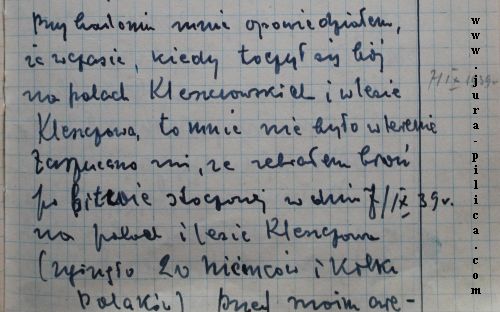 Przy badaniu mnie opowiedziałem,
że w czasie, kiedy toczył się bój
na polach Kleszczowskich i w lesie
Kleszczowa, to mnie nie było w terenie
Zarzucano mi, że zebrałem broń
po bitwie stoczonej w dniu 7/IX 39r.
na polach i lesie Kleszczowa
(zginęło 20 Niemców i kilku
Polaków) przed moim are-
7/IX 1939r.
www.jura-pilica.com